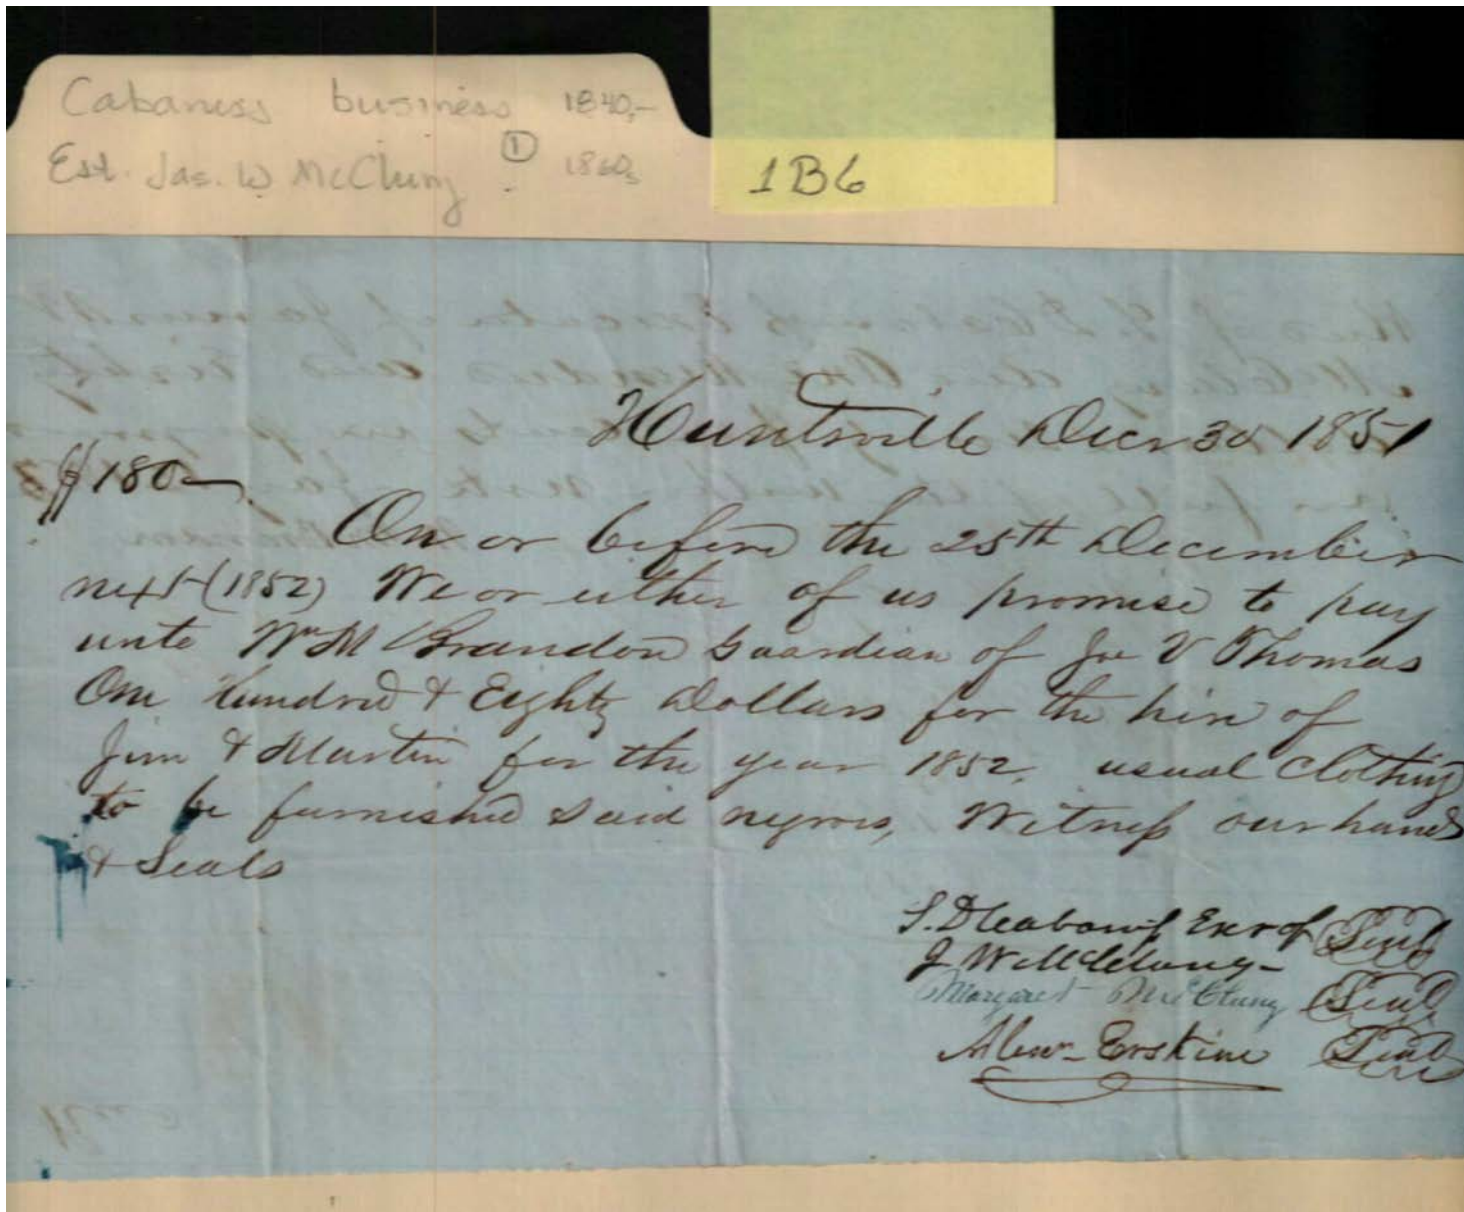 Cabaness business 1840,-
Est. Jas. W McClung ① 1860s
1B6
Huntsville Decr 30 1851
$180—
On or before the 25th December
next (1852) We or either of us promise to pay
unto Wm M Brandon Guardian of Joe V Thomas
One hundred & Eighty Dollars for the hire of
Jim & Martin for the year 1852, usual clothing
to be furnished said negroes, Witness our hands
& Seals
S. D Cabaniss Exr of Seal
J W McClung-
Margaret McClung Seal
Alexr Erskine Seal